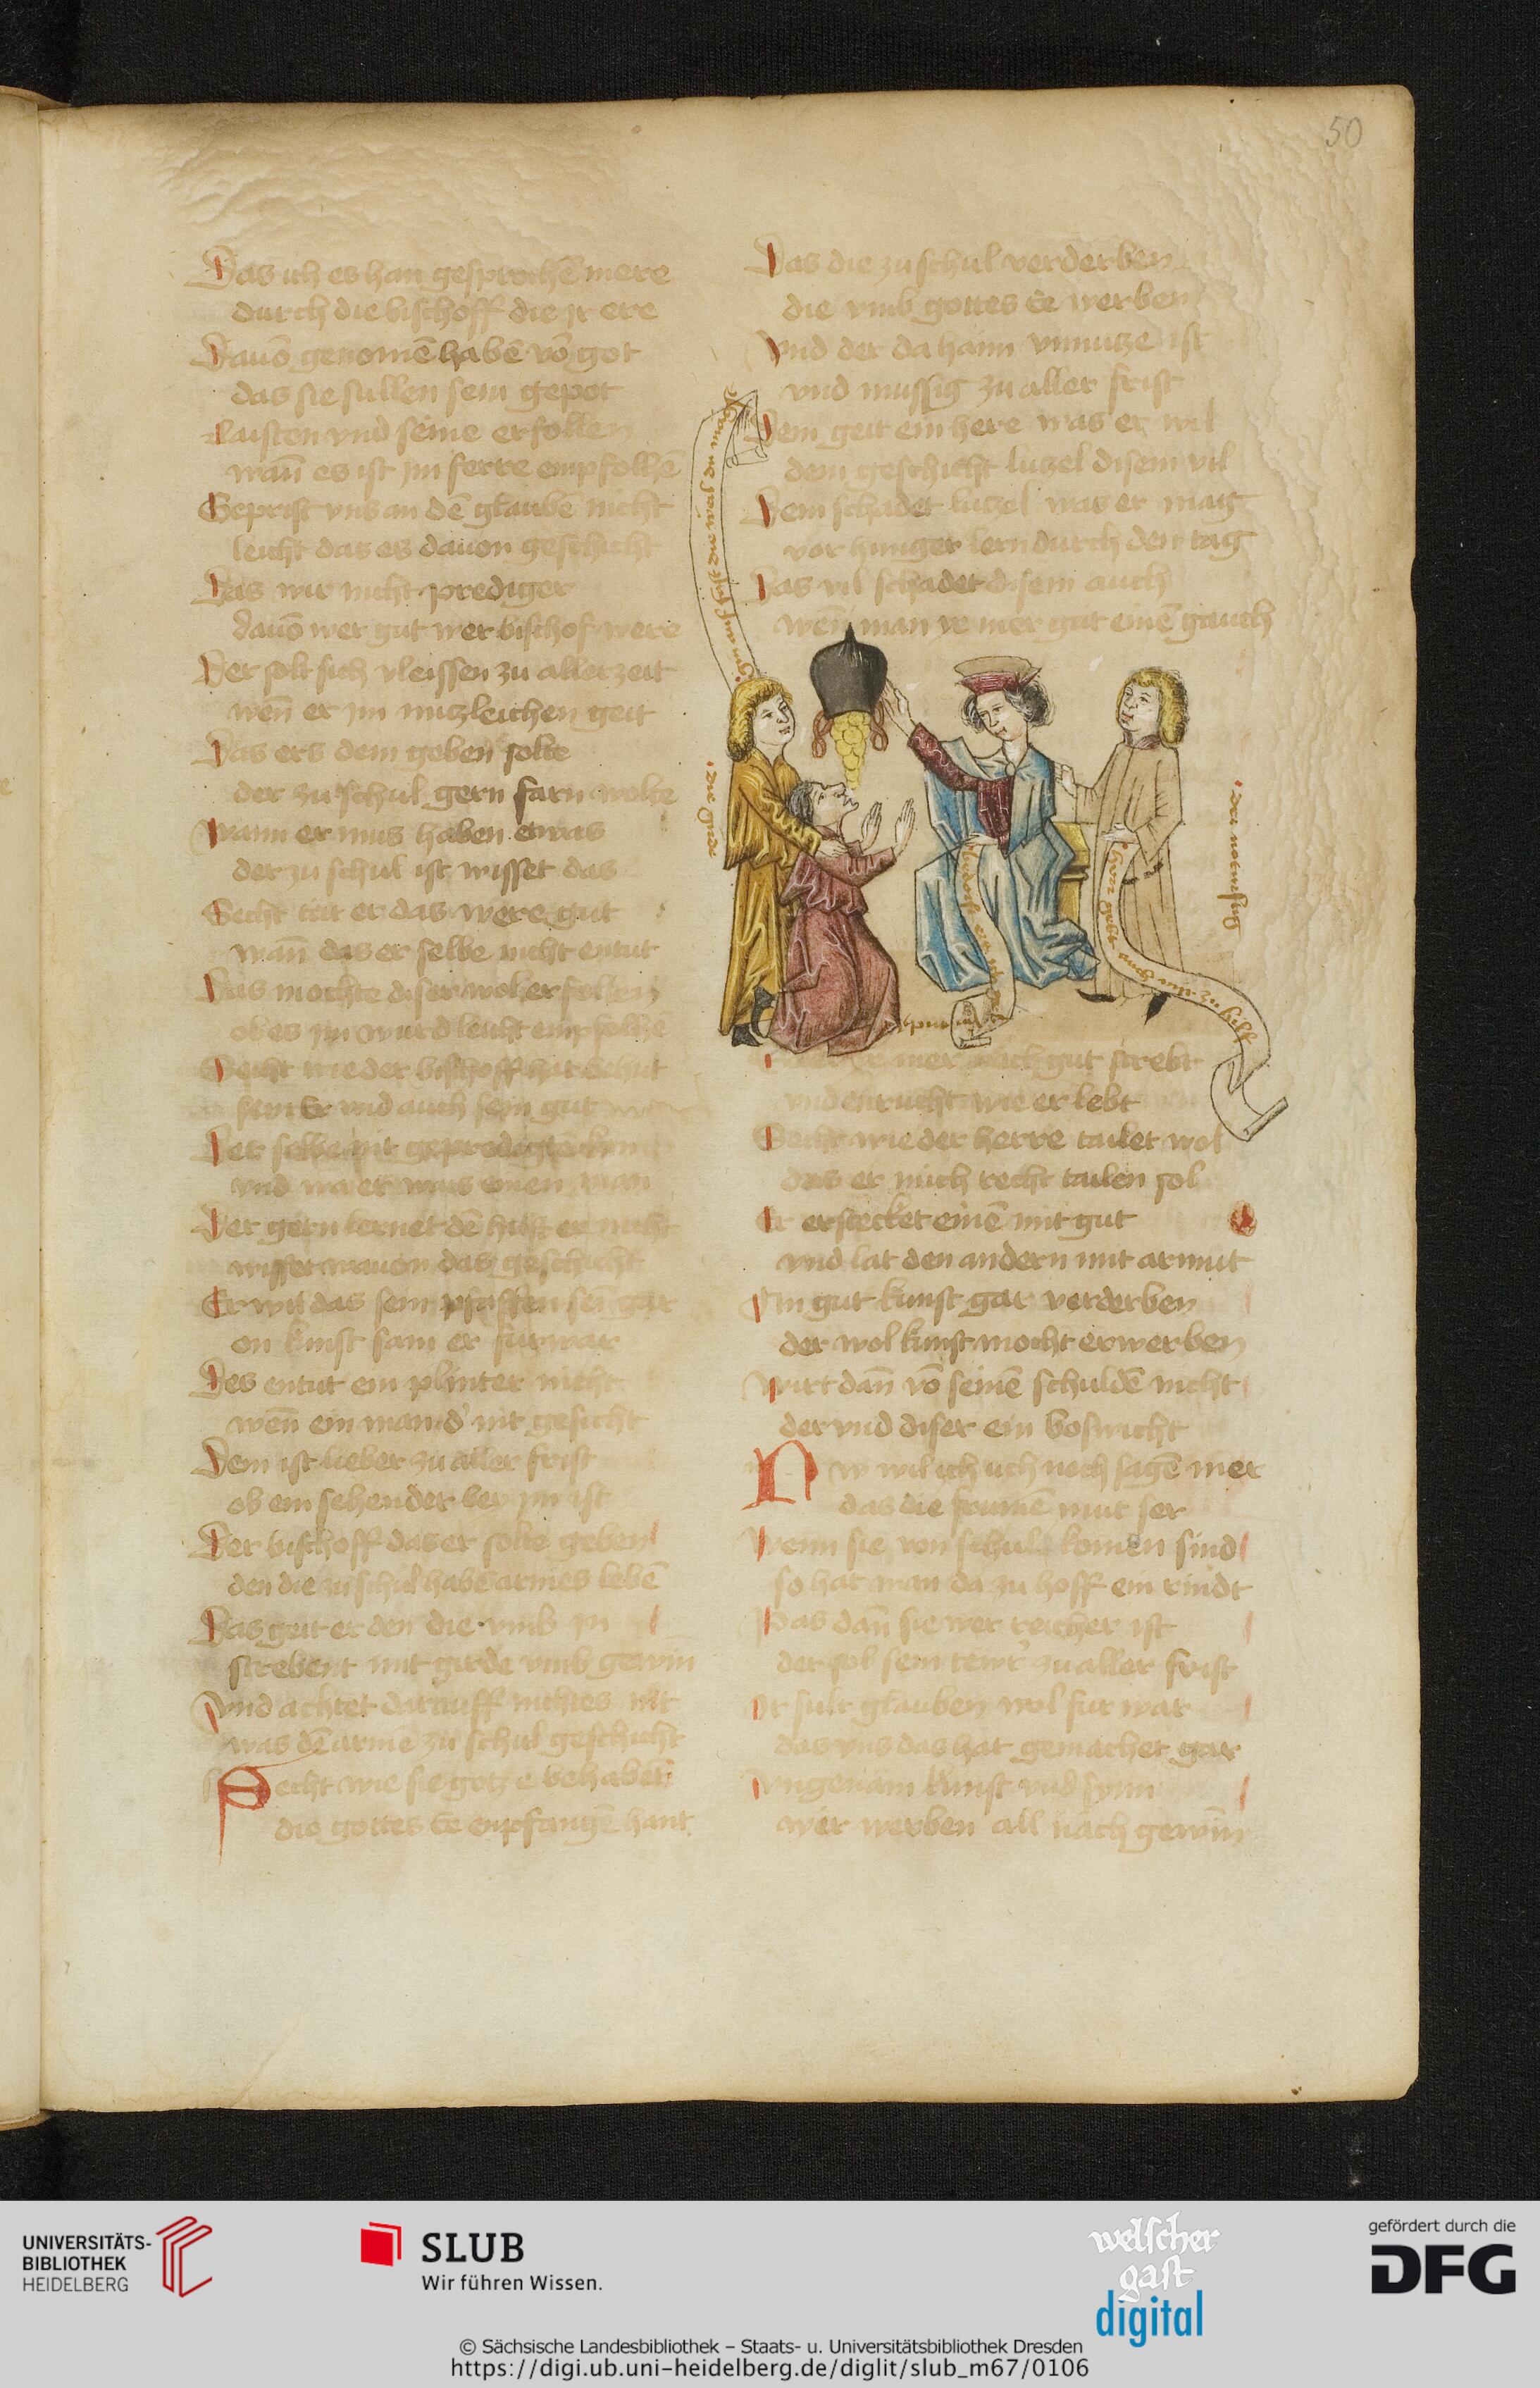 50
Das ich es han gesprochē mere
durch die bischoff die jr ere
Dauō genomē habē vō got
das sie sullen sein gepot
Laisten vnd seine erfollen
wan̄ es ist jm ferre empfolhē
Geprist vns an dē glaubē nicht
leicht das es dauon geschicht
Das wir nicht prediger
dauō wer gut wer bischof were
Der solt sich vleissen zu aller zeit
wen̄ er jm nutzleichen geit
Das ers dem geben solte
der zu schul gern farn wolte
Wann er mus haben etwas
der zu schul ist wisset das
Secht tut er das were gut
wan̄ das er selbe nicht entut
Das mochte diser wol erfollen
ob es jm wurd leicht empfolhē
Secht wie der bischoff hat behut
sein Er vnd auch sein gut
Der selbe nit gepredigen
vnd waer einen man
Der gern lernet dē hilft er nicht
wisset wauon das geschicht
Er wil das sein pfaffen sein gar
on kunst sam er furwar
Des entut ein plinter nicht
wen̄ ein nit gesicht
Dem ist lieber zu aller frist
ob ein sehender bey jm ist
Der bischoff das er solte geben
den die zu schul habē armes lebē
Das geit er den die vmb jn
strebent mit girde vmb gewin
Vnd achtet darauff nichtes nit
was dē arme zu schul geschicht
Secht wie sie gotz e behabēt
die gottes Ee enpfangē hant
Das die zu schul verderben
die vmb gottes Ee werben
Vnd der da haim vnnutze ist
vnd mussig zu aller frist
Dem geit ein here was er wil
dem geschicht lutzel disem vil
Dem schadet lutzel was er mag
vor hunger lern durch den tag
Das vil schadet disem auch
wen̄ man ye mer gut einē gauch
die girde
der notdurftig
mer nach gut strebt
vnd enrucht wie er lebt
Secht wie der herre tailet wol
das er nuch recht tailen sol
Er erstecket einē mit gut
vnd lat den andern mit armut
Ein gut kunst gar verderben
der wol kunst mocht erwerben
Wirt dan̄ vō seinē schuldē nicht
der vnd diser ein boswicht
Nw wil ich uch noch sagē mer
das die frumē mut ser
Wenn sie von schul komen sind
so hat man da zu hoff ein rindt
Das dan̄ sie wer reicher ist
der sol sein tewr zu aller frist
Ir sult glauben wol fur war
das vns das hat gemachet gar
Vngenam kunst vnd synn
wir werben all nach gewin̄
UNIVERSITÄTS-
BIBLIOTHEK
HEIDELBERG
SLUB
Wir führen Wissen.
welscher
gast
digital
gefördert durch die
DFG
© Sächsische Landesbibliothek – Staats- u. Universitätsbibliothek Dresden
https://digi.ub.uni-heidelberg.de/diglit/slub_m67/0106